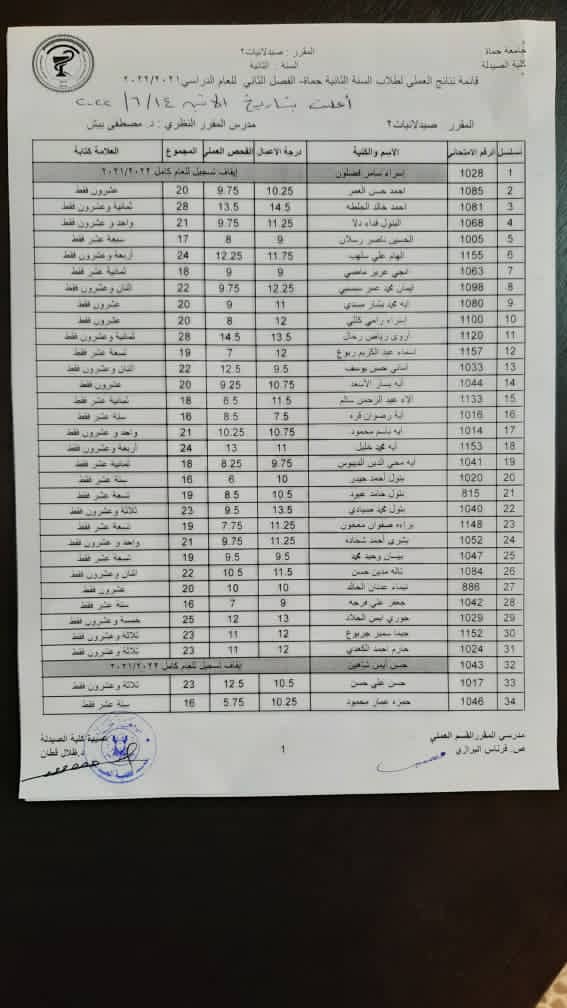 جامعة حماة
كلية الصيدلة
المقرر : صيدلانيات٢
السنة : الثانية
قائمة نتائج العملي لطلاب السنة الثانية حماة- الفصل الثاني للعام الدراسي٢٠٢٢/٢٠٢١
أعلنت بتاريخ الاثنين ٢٠٢٢/٦/١٤
المقرر صيدلانيات٢ مدرس المقرر النظري : د. مصطفى بيش
تسلسل الرقم الامتحاني الاسم والكنية درجة الاعمال الفحص العملي المجموع العلامة كتابة
1 1028 إسراء سامر فضلون إيقاف تسجيل للعام كامل ٢٠٢١/٢٠٢٢
2 1085 احمد حسن العمر 10.25 9.75 20 عشرون فقط
3 1081 احمد خالد الخلطه 14.5 13.5 28 ثمانية وعشرون فقط
4 1068 البتول فداء دلا 11.25 9.75 21 واحد و عشرون فقط
5 1005 الحسين ناصر رسلان 9 8 17 سبعة عشر فقط
6 1155 الهام علي سلهب 11.75 12.25 24 أربعة وعشرون فقط
7 1063 انجي عزيز ماضي 9 9 18 ثمانية عشر فقط
8 1098 ايمان محمد عمر 12.25 9.75 22 اثنان وعشرون فقط
9 1080 ايه محمد بشار سيدي 11 9 20 عشرون فقط
10 1100 إسراء رامي 12 8 20 عشرون فقط
11 1120 أروى رياض رحال 13.5 14.5 28 ثمانية وعشرون فقط
12 1157 اسماء عبد الكريم ربوع 12 7 19 تسعة عشر فقط
13 1033 أماني حسن يوسف 9.5 12.5 22 اثنان وعشرون فقط
14 1044 آية يسار الأسعد 10.75 9.25 20 عشرون فقط
15 1133 آلاء عبد الرحمن سالم 11.5 6.5 18 ثمانية عشر فقط
16 1016 آية رضوان قره 7.5 8.5 16 ستة عشر فقط
17 1014 آيه باسم محمود 10.75 10.25 21 واحد و عشرون فقط
18 1153 آيه محمد خليل 11 13 24 أربعة وعشرون فقط
19 1041 ايه محي الدين الدبوس 9.75 8.25 18 ثمانية عشر فقط
20 1020 بتول أحمد حيدر 10 6 16 ستة عشر فقط
21 815 بتول حامد عبود 10.5 8.5 19 تسعة عشر فقط
22 1040 بتول محمد صيادي 13.5 9.5 23 ثلاثة وعشرون فقط
23 1148 براءه صفوان معجون 11.25 7.75 19 تسعة عشر فقط
24 1052 بشرى أحمد شحاده 11.25 9.75 21 واحد و عشرون فقط
25 1047 بيسان وحيد محمد 9.5 9.5 19 تسعة عشر فقط
26 1084 تاله مدين حسن 11.5 10.5 22 اثنان وعشرون فقط
27 886 تيماء عدنان الخالد 10 10 20 عشرون فقط
28 1042 جعفر علي فرحه 9 7 16 ستة عشر فقط
29 1029 جوري ايمن الجلاد 13 12 25 خمسة وعشرون فقط
30 1152 جيما سمير جربوع 12 11 23 ثلاثة وعشرون فقط
31 1024 حازم أحمد الكعدي 12 11 23 ثلاثة وعشرون فقط
32 1043 حسن أيمن شاهين إيقاف تسجيل للعام كامل ٢٠٢١/٢٠٢٢
33 1017 حسن علي حسن 10.5 12.5 23 ثلاثة وعشرون فقط
34 1046 حمزه عمار محمود 10.25 5.75 16 ستة عشر فقط
مدرسي المقرر القسم العملي
ص. فرناس البرازي
1
عميد كلية الصيدلة
د. طلال قطان